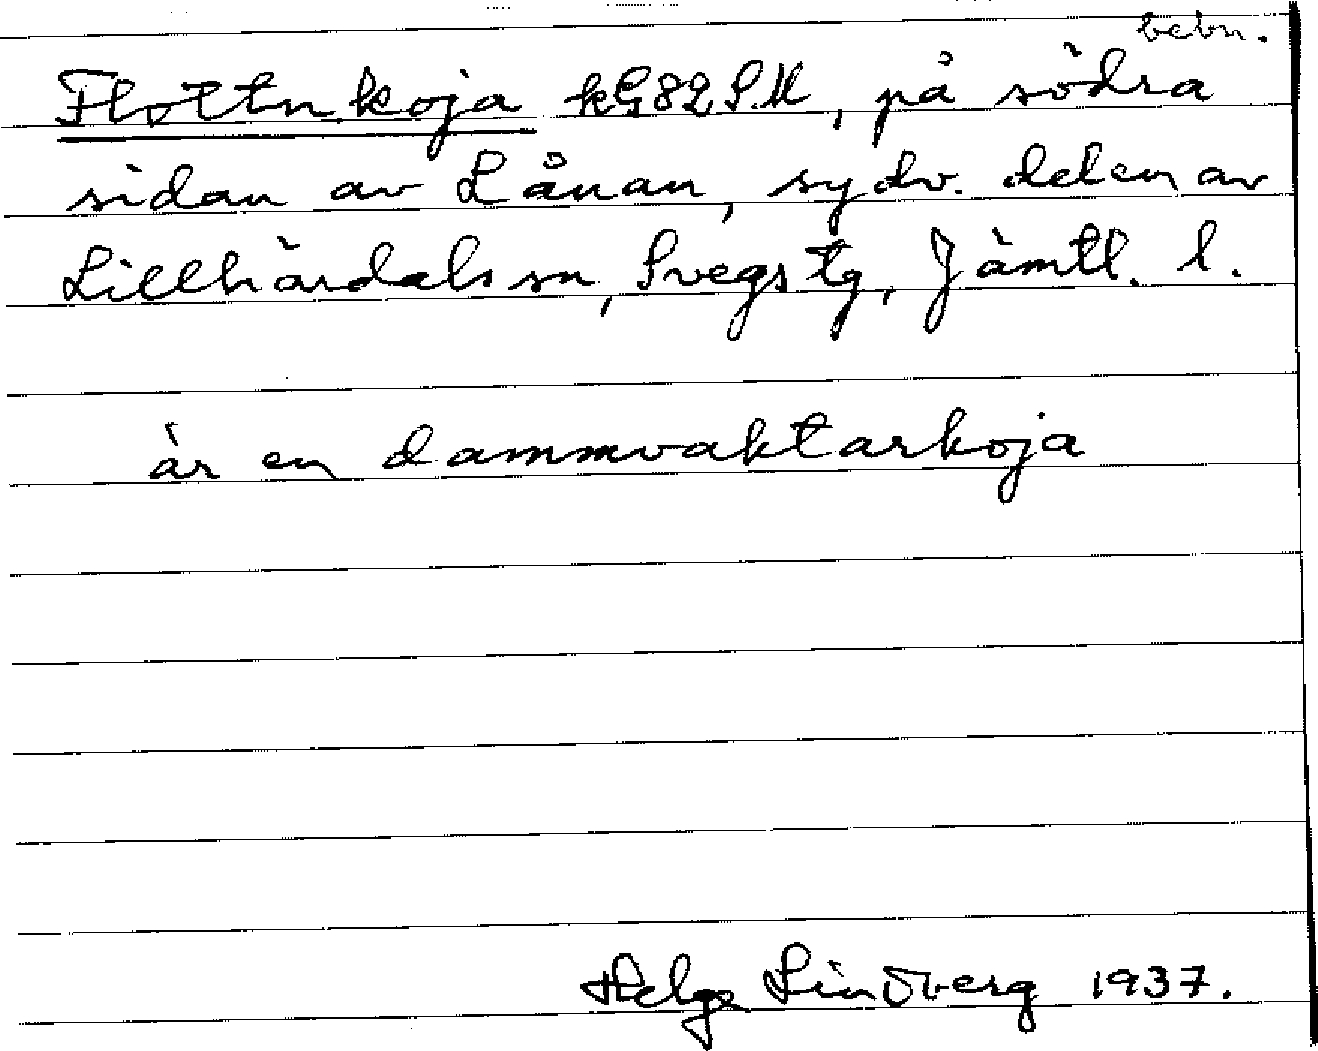 bebn.
Flottnkoja kG82S.M, på södra
sidan av Lånan, sydv. delen av
Lillhärdals sn, Svegs tg, Jämtl. l.
är en dammvaktarkoja
Helge Lindberg 1937.